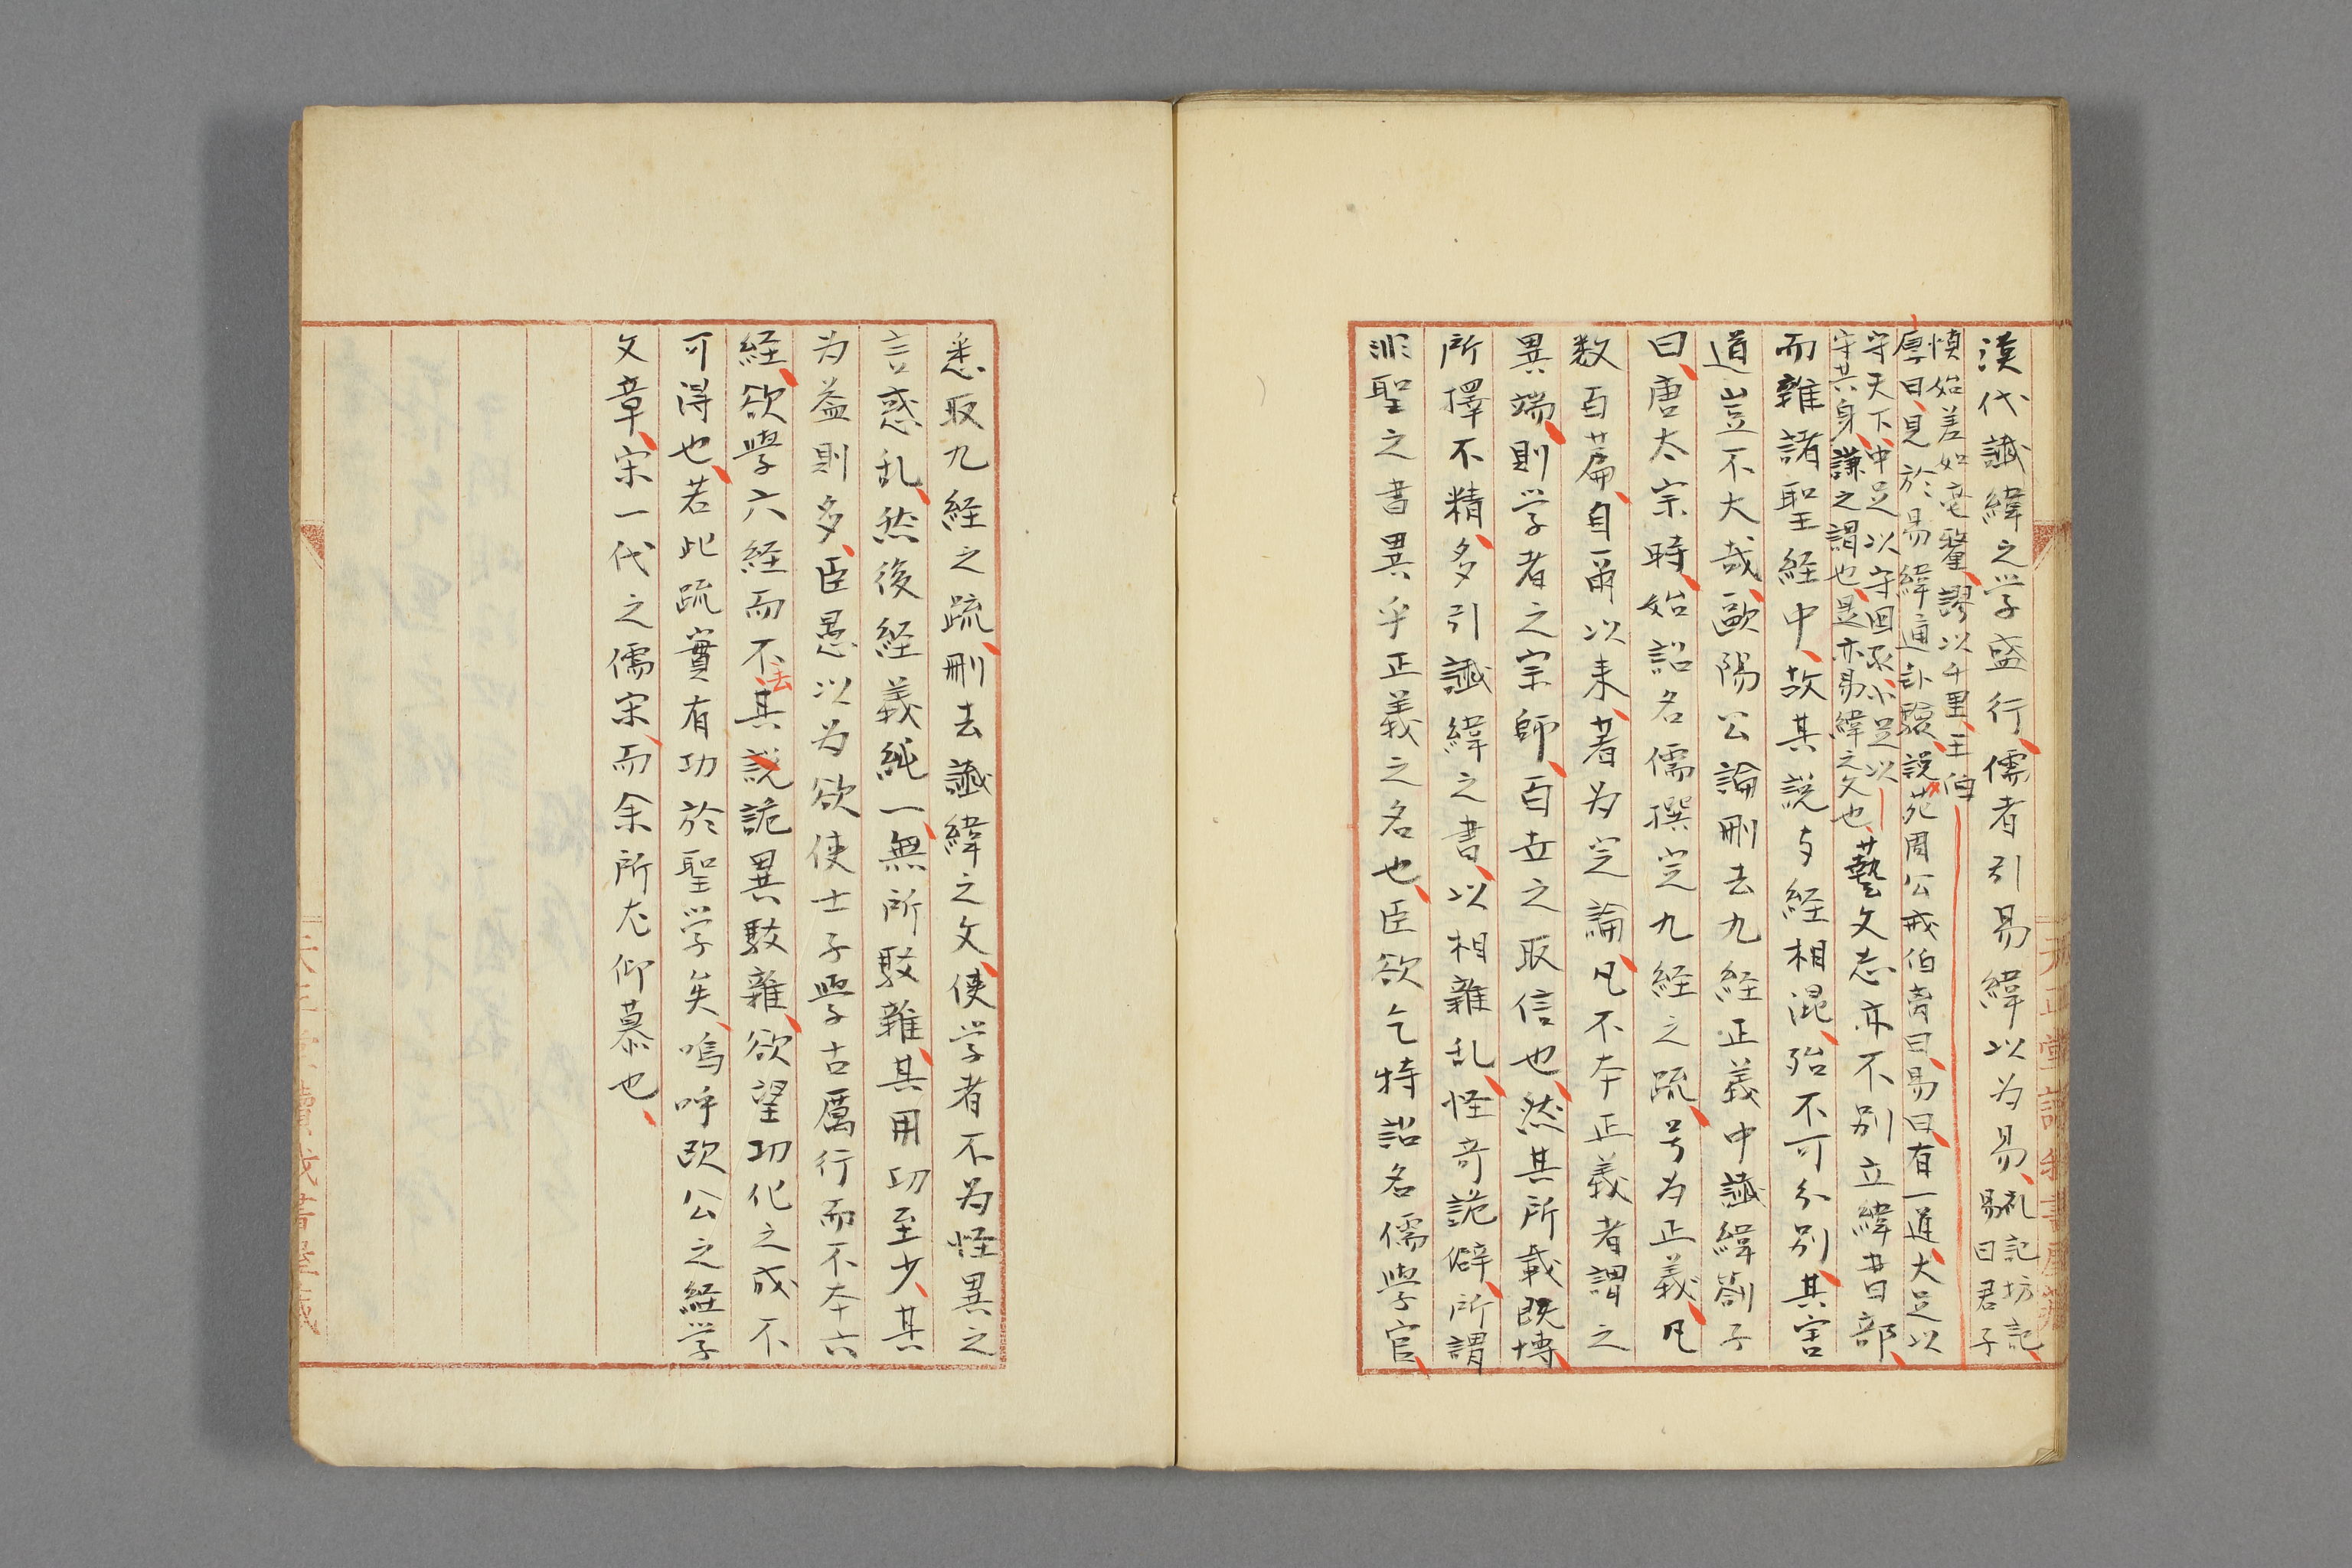 漢代讖緯之学盛行、儒者引易緯以为易、礼記坊記、易曰君子
慎始差如毫釐、謬以千里、王伯
厚曰、見於易緯通卦驗、説苑周公戒伯禽曰、易曰、有一道、大足以
守天下、中足以守国家、小足以
守其身、謙之謂也、是亦易緯之文也、藝文志亦不別立緯書部、
而雜諸聖経中、故其説与経相混、殆不可分別、其害
道豈不大哉、歐陽公論刪去九経正義中讖緯劄子
曰、唐太宗時、始詔名儒撰定九経之疏、号为正義、凡
数百篇、自爾以来、著为定論、凡不本正義者謂之
異端、則学者之宗師、百世之取信也、然其所載既博、
所擇不精、多引讖緯之書、以相雜乱、怪奇詭僻、所謂
非聖之書異乎正義之名也、臣欲乞特詔名儒學官、
悉取九経之疏、刪去讖緯之文、使学者不为怪異之
言惑乱、然後経義純一、無所駁雜、其用功至少、其
为益則多、臣愚以为欲使士子學古厲行而不本六
経、欲學六経而不去其詭異駁雜、欲望功化之成不
可得也、若此疏實有功於聖学矣、嗚呼欧公之経学
文章、宋一代之儒宗、而余所尤仰慕也、